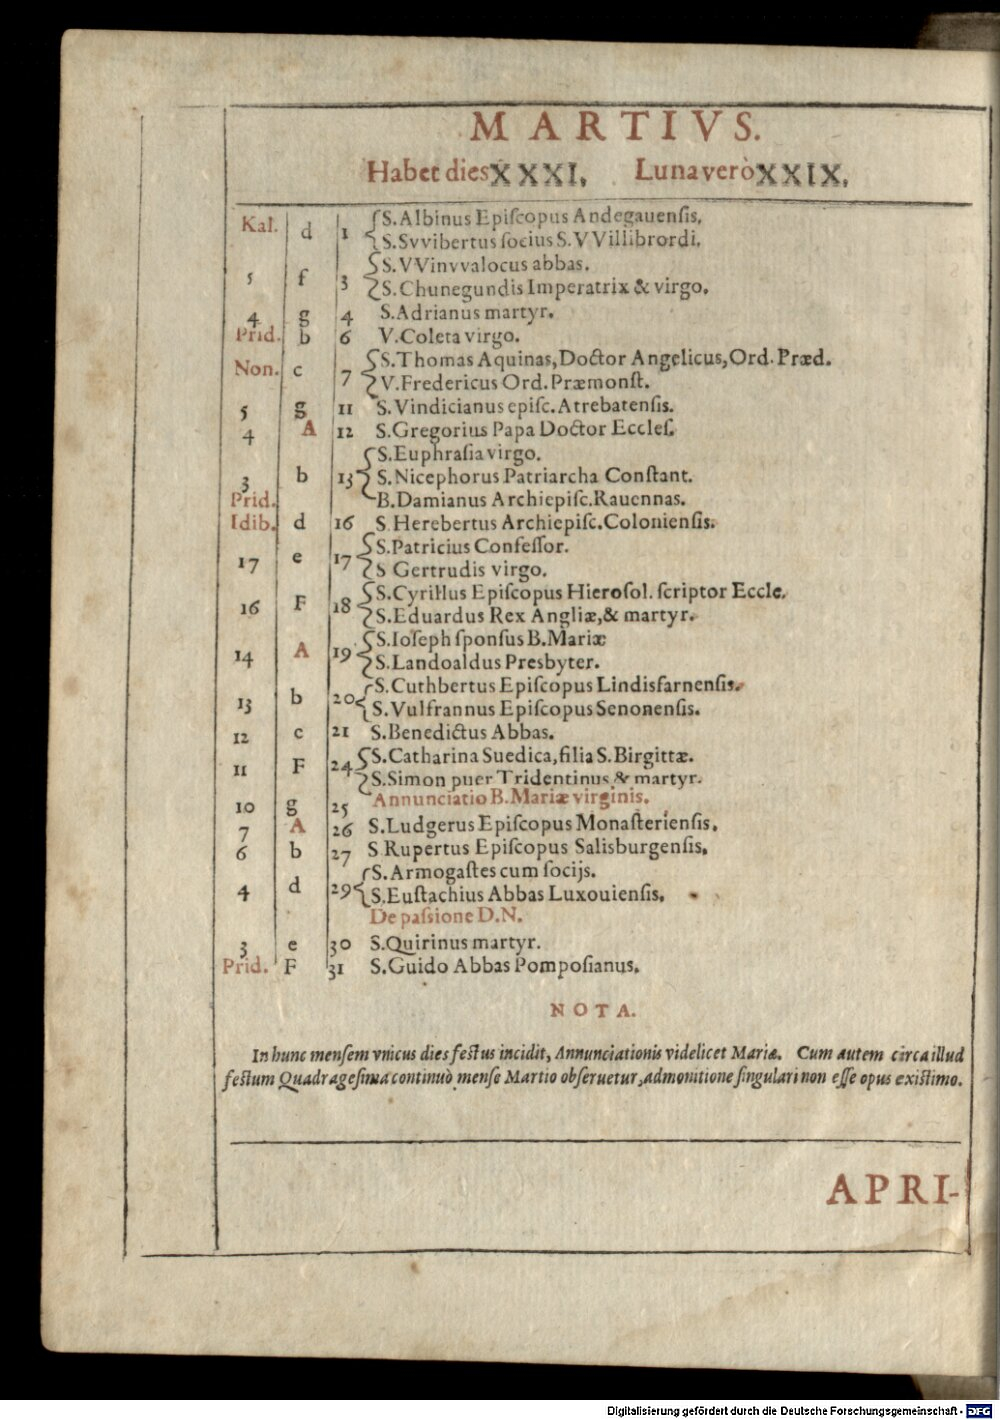 MARTIVS.
Habet dies XXXI, Luna verò XXIX,
Kal. d 1 S. Albinus Epiſcopus Andegauenſis.
S. Svvibertus ſocius S. VVillibrordi.
5 f 3 S. VVinvvalocus abbas.
S. Chunegundis Imperatrix & virgo.
4 g 4 S. Adrianus martyr.
Prid. b 6 V. Coleta virgo.
Non. c 7 S. Thomas Aquinas, Doctor Angelicus, Ord. Præd.
V. Fredericus Ord. Præmonſt.
5 g 11 S. Vindicianus epiſc. Atrebatenſis.
4 A 12 S. Gregorius Papa Doctor Eccleſ.
S. Euphraſia virgo.
3 b 13 S. Nicephorus Patriarcha Conſtant.
Prid. B. Damianus Archiepiſc. Rauennas.
Idib. d 16 S. Herebertus Archiepiſc. Colonienſis.
17 e 17 S. Patricius Confeſſor.
S Gertrudis virgo.
16 F 18 S. Cyrillus Epiſcopus Hieroſol. ſcriptor Eccle.
S. Eduardus Rex Angliæ, & martyr.
14 A 19 S. Ioſeph ſponſus B. Mariæ
S. Landoaldus Presbyter.
13 b 20 S. Cuthbertus Epiſcopus Lindisfarnenſis.
S. Vulfrannus Epiſcopus Senonenſis.
12 c 21 S. Benedictus Abbas.
11 F 24 S. Catharina Suedica, filia S. Birgittæ.
S. Simon puer Tridentinus, & martyr.
10 g 25 Annunciatio B. Mariæ virginis.
7 A 26 S. Ludgerus Epiſcopus Monaſterienſis.
6 b 27 S Rupertus Epiſcopus Salisburgenſis,
4 d 29 S. Armogaſtes cum ſocijs.
S. Euſtachius Abbas Luxouienſis.
De paſsione D. N.
3 e 30 S. Quirinus martyr.
Prid. F 31 S. Guido Abbas Pompoſianus.
NOTA.
In hunc menſem vnicus dies feſtus incidit, Annunciationis videlicet Mariæ. Cum autem circa illud
feſtum Quadrageſima continuò menſe Martio obſeruetur, admonitione ſingulari non eſſe opus exiſtimo.
APRI-
Digitalisierung gefördert durch die Deutsche Forschungsgemeinschaft - DFG